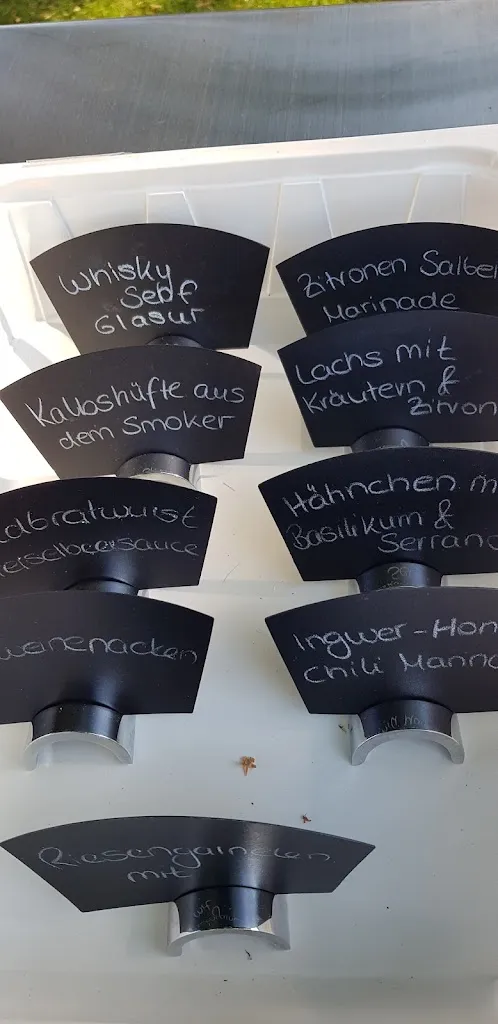 Whisky
Senf
Glasur
Zitronen Salbei
Marinade
Kalbshüfte aus
dem Smoker
Lachs mit
Kräutern &
Zitron
ldbratwurst
eiselbeersauce
Hähnchen m
Basilikum &
Serrano
weinenacken
Ingwer-Hon
Chili Marina
Riesengarnelen
mit